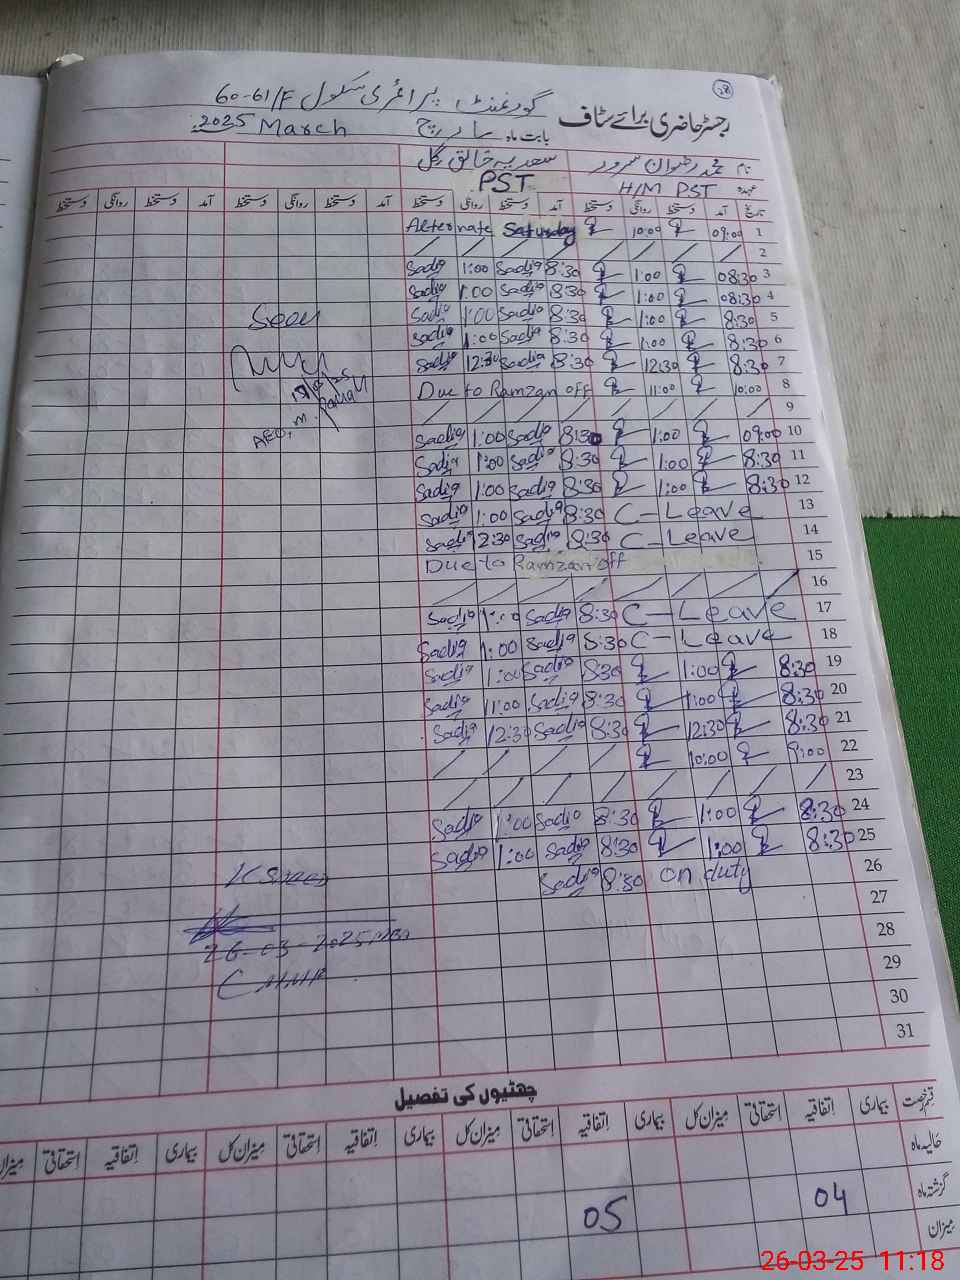 28
گورنمنٹ پرائمری سکول 60-61/F
رجسٹر حاضری برائے سٹاف
بابت ماہ مارچ March 2025
نام محمد رضوان سرور سعدیہ خالق گل
عہدہ H/M PST PST
تاریخ آمد دستخط روانگی دستخط آمد دستخط روانگی دستخط آمد دستخط روانگی دستخط آمد دستخط روانگی دستخط
Alternate Saturday 10:00 09:00 1
2
Sadia 1:00 Sadia 8:30 1:00 08:30 3
Sadia 1:00 Sadia 8:30 1:00 08:30 4
Sadia 1:00 Sadia 8:30 1:00 8:30 5
Sadia 1:00 Sadia 8:30 1:00 8:30 6
Sadia 12:30 Sadia 8:30 12:30 8:30 7
Due to Ramzan off 11:00 10:00 8
9
Sadia 1:00 Sadia 8:30 1:00 09:00 10
Sadia 1:00 Sadia 8:30 1:00 8:30 11
Sadia 1:00 Sadia 8:30 1:00 8:30 12
Sadia 1:00 Sadia 8:30 C-Leave 13
Sadia 12:30 Sadia 8:30 C-Leave 14
Due to Ramzan off 15
16
Sadia 1:00 Sadia 8:30 C-Leave 17
Sadia 1:00 Sadia 8:30 C-Leave 18
Sadia 1:00 Sadia 8:30 1:00 8:30 19
Sadia 11:00 Sadia 8:30 1:00 8:30 20
Sadia 12:30 Sadia 8:30 12:30 8:30 21
10:00 9:00 22
23
Sadia 1:00 Sadia 8:30 1:00 8:30 24
Sadia 1:00 Sadia 8:30 1:00 8:30 25
Sadia 8:30 on duty 26
27
28
29
30
31
Seen
AEO, M.
26-03-2025
چھٹیوں کی تفصیل
قسم رخصت بیماری اتفاقیہ استحقاقی میزان کل بیماری اتفاقیہ استحقاقی میزان کل بیماری اتفاقیہ استحقاقی میزان کل بیماری اتفاقیہ استحقاقی میزان
حالیہ ماہ
گزشتہ ماہ 04 05
میزان
26-03-25 11:18